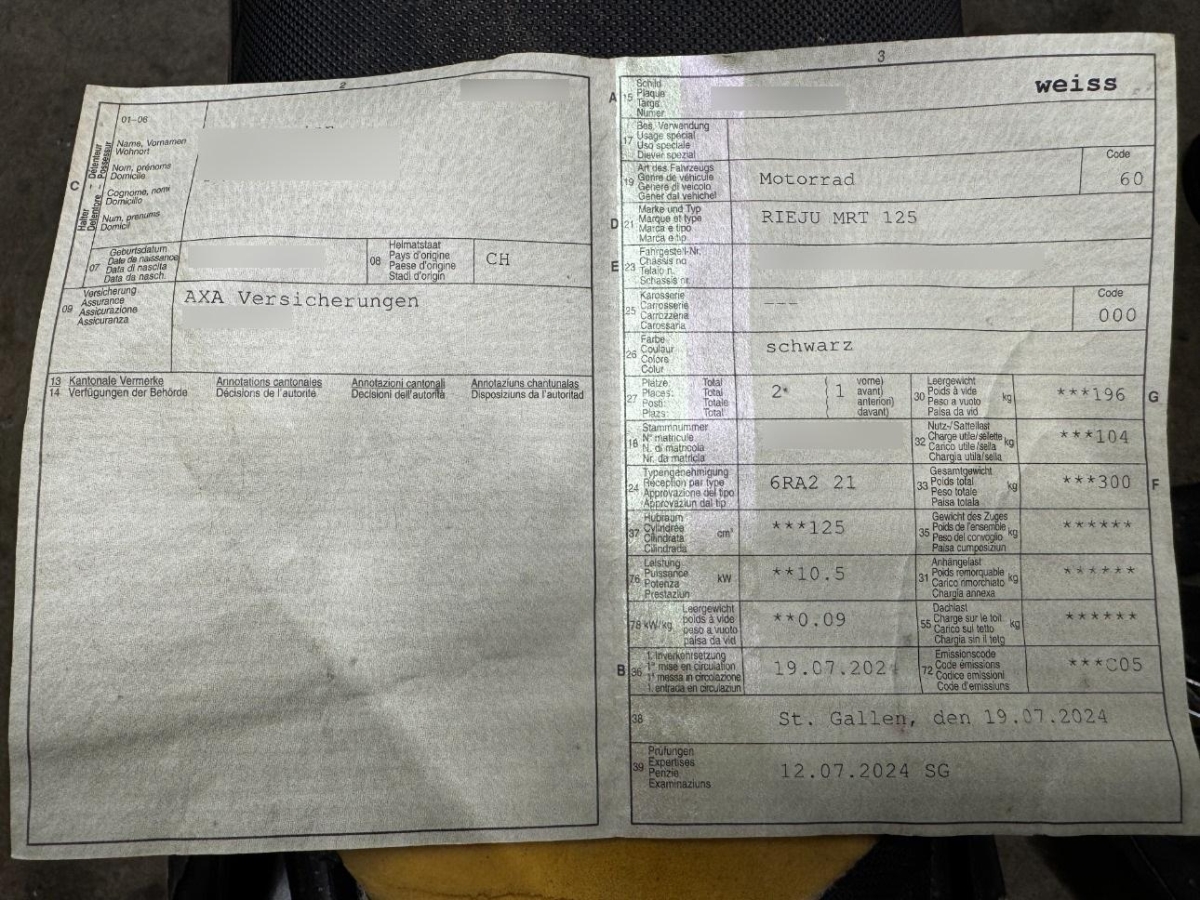 2
01–06
C
Halter - Détenteur
Detentore - Possessur
Name, Vornamen
Wohnort
Nom, prénoms
Domicile
Cognome, nomi
Domicilio
Num, prenums
Domicil
07
Geburtsdatum
Date de naissance
Data di nascita
Data da nasch.
08
Heimatstaat
Pays d'origine
Paese d'origine
Stadi d'origin
CH
09
Versicherung
Assurance
Assicurazione
Assicuranza
AXA Versicherungen
13 Kantonale Vermerke Annotations cantonales Annotazioni cantonali Annotaziuns chantunalas
14 Verfügungen der Behörde Décisions de l'autorité Decisioni dell'autorità Disposiziuns da l'autoritad
3
A 15
Schild
Plaque
Targa
Numer
weiss
17
Bes. Verwendung
Usage spécial
Uso speciale
Diever spezial
19
Art des Fahrzeugs
Genre de véhicule
Genere di veicolo
Gener dal vehichel
Motorrad
Code
60
D 21
Marke und Typ
Marque et type
Marca e tipo
Marca e tip
RIEJU MRT 125
E 23
Fahrgestell-Nr.
Châssis no
Telaio n.
Schassis nr.
25
Karosserie
Carrosserie
Carrozzeria
Carossaria
---
Code
000
26
Farbe
Couleur
Colore
Colur
schwarz
27
Plätze: Total
Places: Total
Posti: Totale
Plazs: Total
2* ( 1
vorne)
avant)
anteriori)
davant)
30
Leergewicht
Poids à vide
Peso a vuoto
Paisa da vid
kg
***196
G
18
Stammnummer
N° matricule
N. di matricola
Nr. da matricla
32
Nutz-/Sattellast
Charge utile/sellette
Carico utile/sella
Chargia utila/sella
kg
***104
24
Typengenehmigung
Réception par type
Approvazione del tipo
Approvaziun dal tip
6RA2 21
33
Gesamtgewicht
Poids total
Peso totale
Paisa totala
kg
***300
F
37
Hubraum
Cylindrée
Cilindrata
Cilindrada
cm³
***125
35
Gewicht des Zuges
Poids de l'ensemble
Peso del convoglio
Paisa cumposiziun
kg
******
76
Leistung
Puissance
Potenza
Prestaziun
kW
**10.5
31
Anhängelast
Poids remorquable
Carico rimorchiato
Chargia annexa
kg
******
78 kW/kg
Leergewicht
poids à vide
peso a vuoto
paisa da vid
**0.09
55
Dachlast
Charge sur le toit
Carico sul tetto
Chargia sin il tetg
kg
******
B 36
1. Inverkehrsetzung
1re mise en circulation
1a messa in circolazione
1. entrada en circulaziun
19.07.2024
72
Emissionscode
Code émissions
Codice emissioni
Code d'emissiuns
***C05
38
St. Gallen, den 19.07.2024
39
Prüfungen
Expertises
Perizie
Examinaziuns
12.07.2024 SG